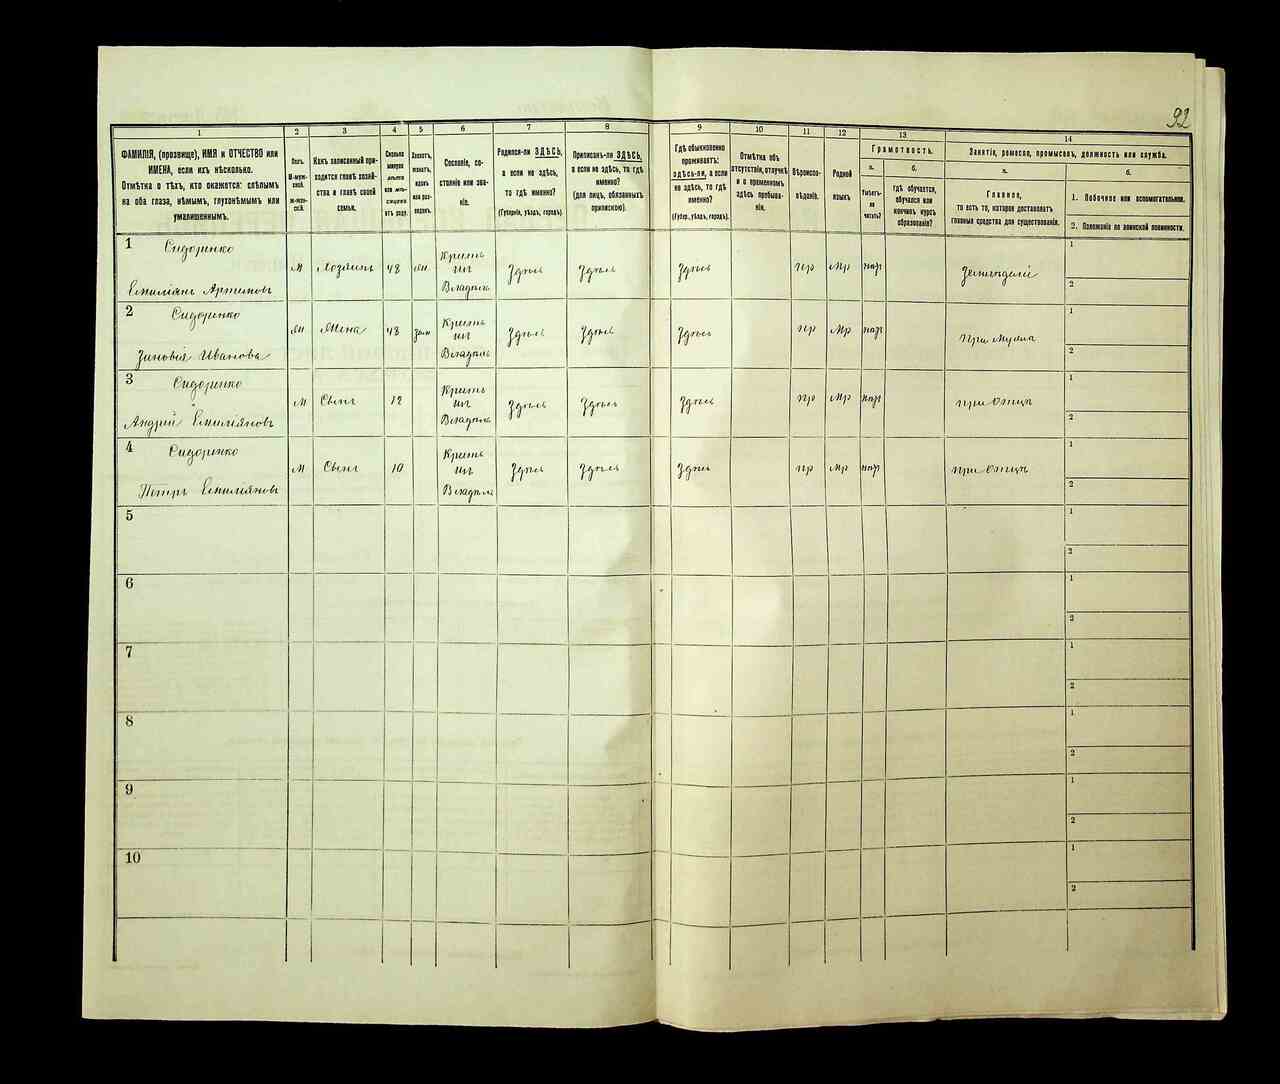 92
1 2 3 4 5 6 7 8 9 10 11 12 13 14
ФАМИЛІЯ, (прозвище), ИМЯ и ОТЧЕСТВО или
ИМЕНА, если ихъ нѣсколько.
Отмѣтка о тѣхъ, кто окажется: слѣпымъ
на оба глаза, нѣмымъ, глухонѣмымъ или
умалишеннымъ.
Полъ.
М-муж-
ской.
Ж-жен-
скій.
Какъ записанный при-
ходится главѣ хозяй-
ства и главѣ своей
семьи.
Сколько
минуло
лѣтъ
или мѣ-
сяцевъ
отъ роду.
Холостъ,
женатъ,
вдовъ
или раз-
веденъ.
Сословіе, со-
стояніе или зва-
ніе.
Родился-ли ЗДѢСЬ,
а если не здѣсь,
то гдѣ именно?
(Губернія, уѣздъ, городъ).
Приписанъ-ли ЗДѢСЬ,
а если не здѣсь, то гдѣ
именно?
(для лицъ, обязанныхъ
припискою).
Гдѣ обыкновенно
проживаетъ:
здѣсь-ли, а если
не здѣсь, то гдѣ
именно?
(Губер., уѣздъ, городъ).
Отмѣтка объ
отсутствіи, отлучкѣ
и о временномъ
здѣсь пребыва-
ніи.
Вѣроиспо-
вѣданіе.
Родной
языкъ.
Грамотность.
а.
Умѣетъ-
ли
читать?
б.
гдѣ обучается,
обучался или
кончилъ курсъ
образованія?
Занятіе, ремесло, промыселъ, должность или служба.
а.
Главное,
то есть то, которое доставляетъ
главныя средства для существованія.
б.
1. Побочное или вспомогательное.
2. Положеніе по воинской повинности.
1 Сидоренко
Емиліянъ Артимовъ
М Хозяинъ 48 Здѣсь Здѣсь Здѣсь пр Мр
1
2
2 Сидоренко
Зиновія Иванова
Жена 48 Здѣсь Здѣсь Здѣсь пр Мр При Мужѣ
1
2
3 Сидоренко
Андрій Емиліяновъ
М Сынъ 12 Здѣсь Здѣсь Здѣсь пр Мр при Отцѣ
1
2
4 Сидоренко
Петръ Емиліяновъ
М Сынъ 10 Здѣсь Здѣсь Здѣсь пр Мр при Отцѣ
1
2
5
1
2
6
1
2
7
1
2
8
1
2
9
1
2
10
1
2